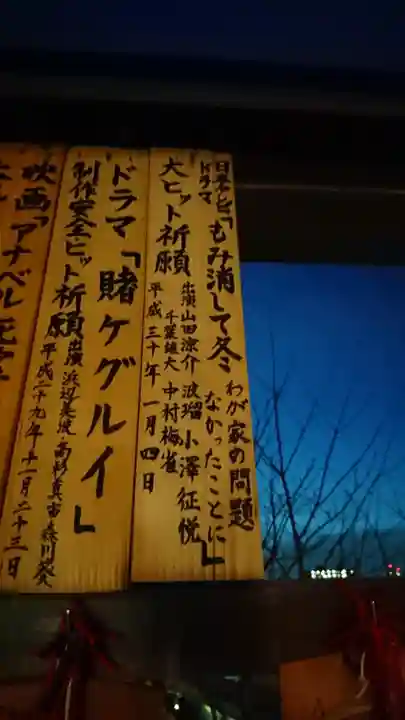 日本テレビ
ドラマ
「もみ消して冬
わが家の問題
なかったことに」
大ヒット祈願
出演山田涼介 波瑠 小澤征悦
千葉雄大 中村梅雀
平成三十年一月四日
ドラマ「賭ケグルイ」
制作安全ヒット祈願
出演 浜辺美波・高杉真宙・森川葵
平成二十九年十一月二十三日
映画「アナベル